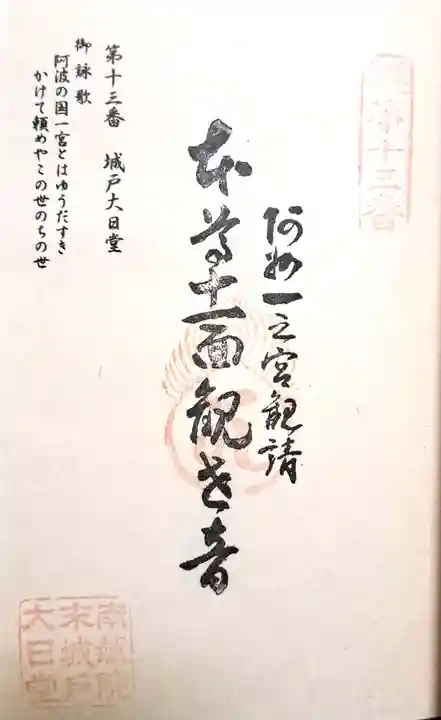 第十三番
阿州一之宮観請
本尊十一面観世音
第十三番 城戸大日堂
御詠歌
阿波の国一宮とはゆうだすき
かけて頼めやこの世のちの世
南蔵院
末城戸
大日堂